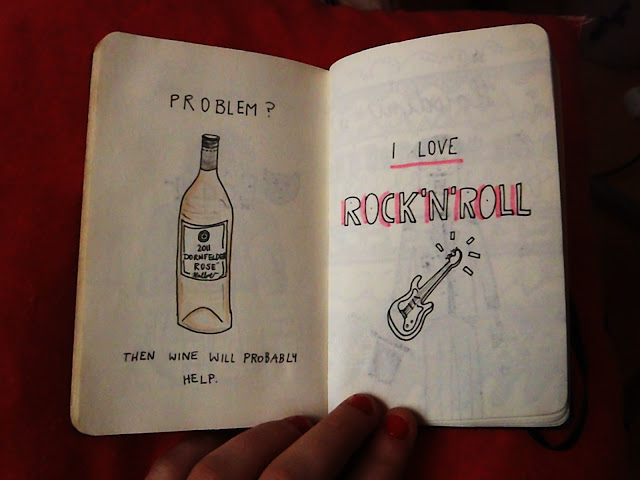 PROBLEM?
2011
DORNFELDER
ROSÉ
THEN WINE WILL PROBABLY
HELP.
I LOVE
ROCK'N'ROLL